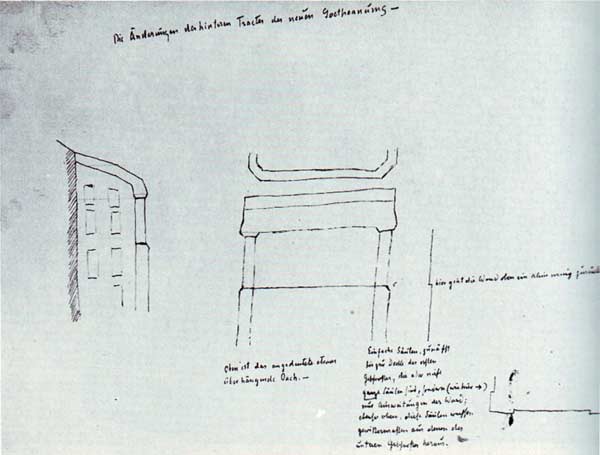 Die Änderungen des hinteren Tractes des neuen Goetheanums —
hier geht die Wand oben ein klein wenig zurück
Oben ist das angedeutete etwas
überhängende Dach. —
Einfache Säulen, zunächst
bis zur Decke der ersten
Geschosses, die aber nicht
ganze Säulen sind, sondern (wie hier →)
nur Ausweitungen der Wand;
ebenso oben, diese Säulen wachsen
gewissermaßen aus denen des
unteren Geschosses heraus.